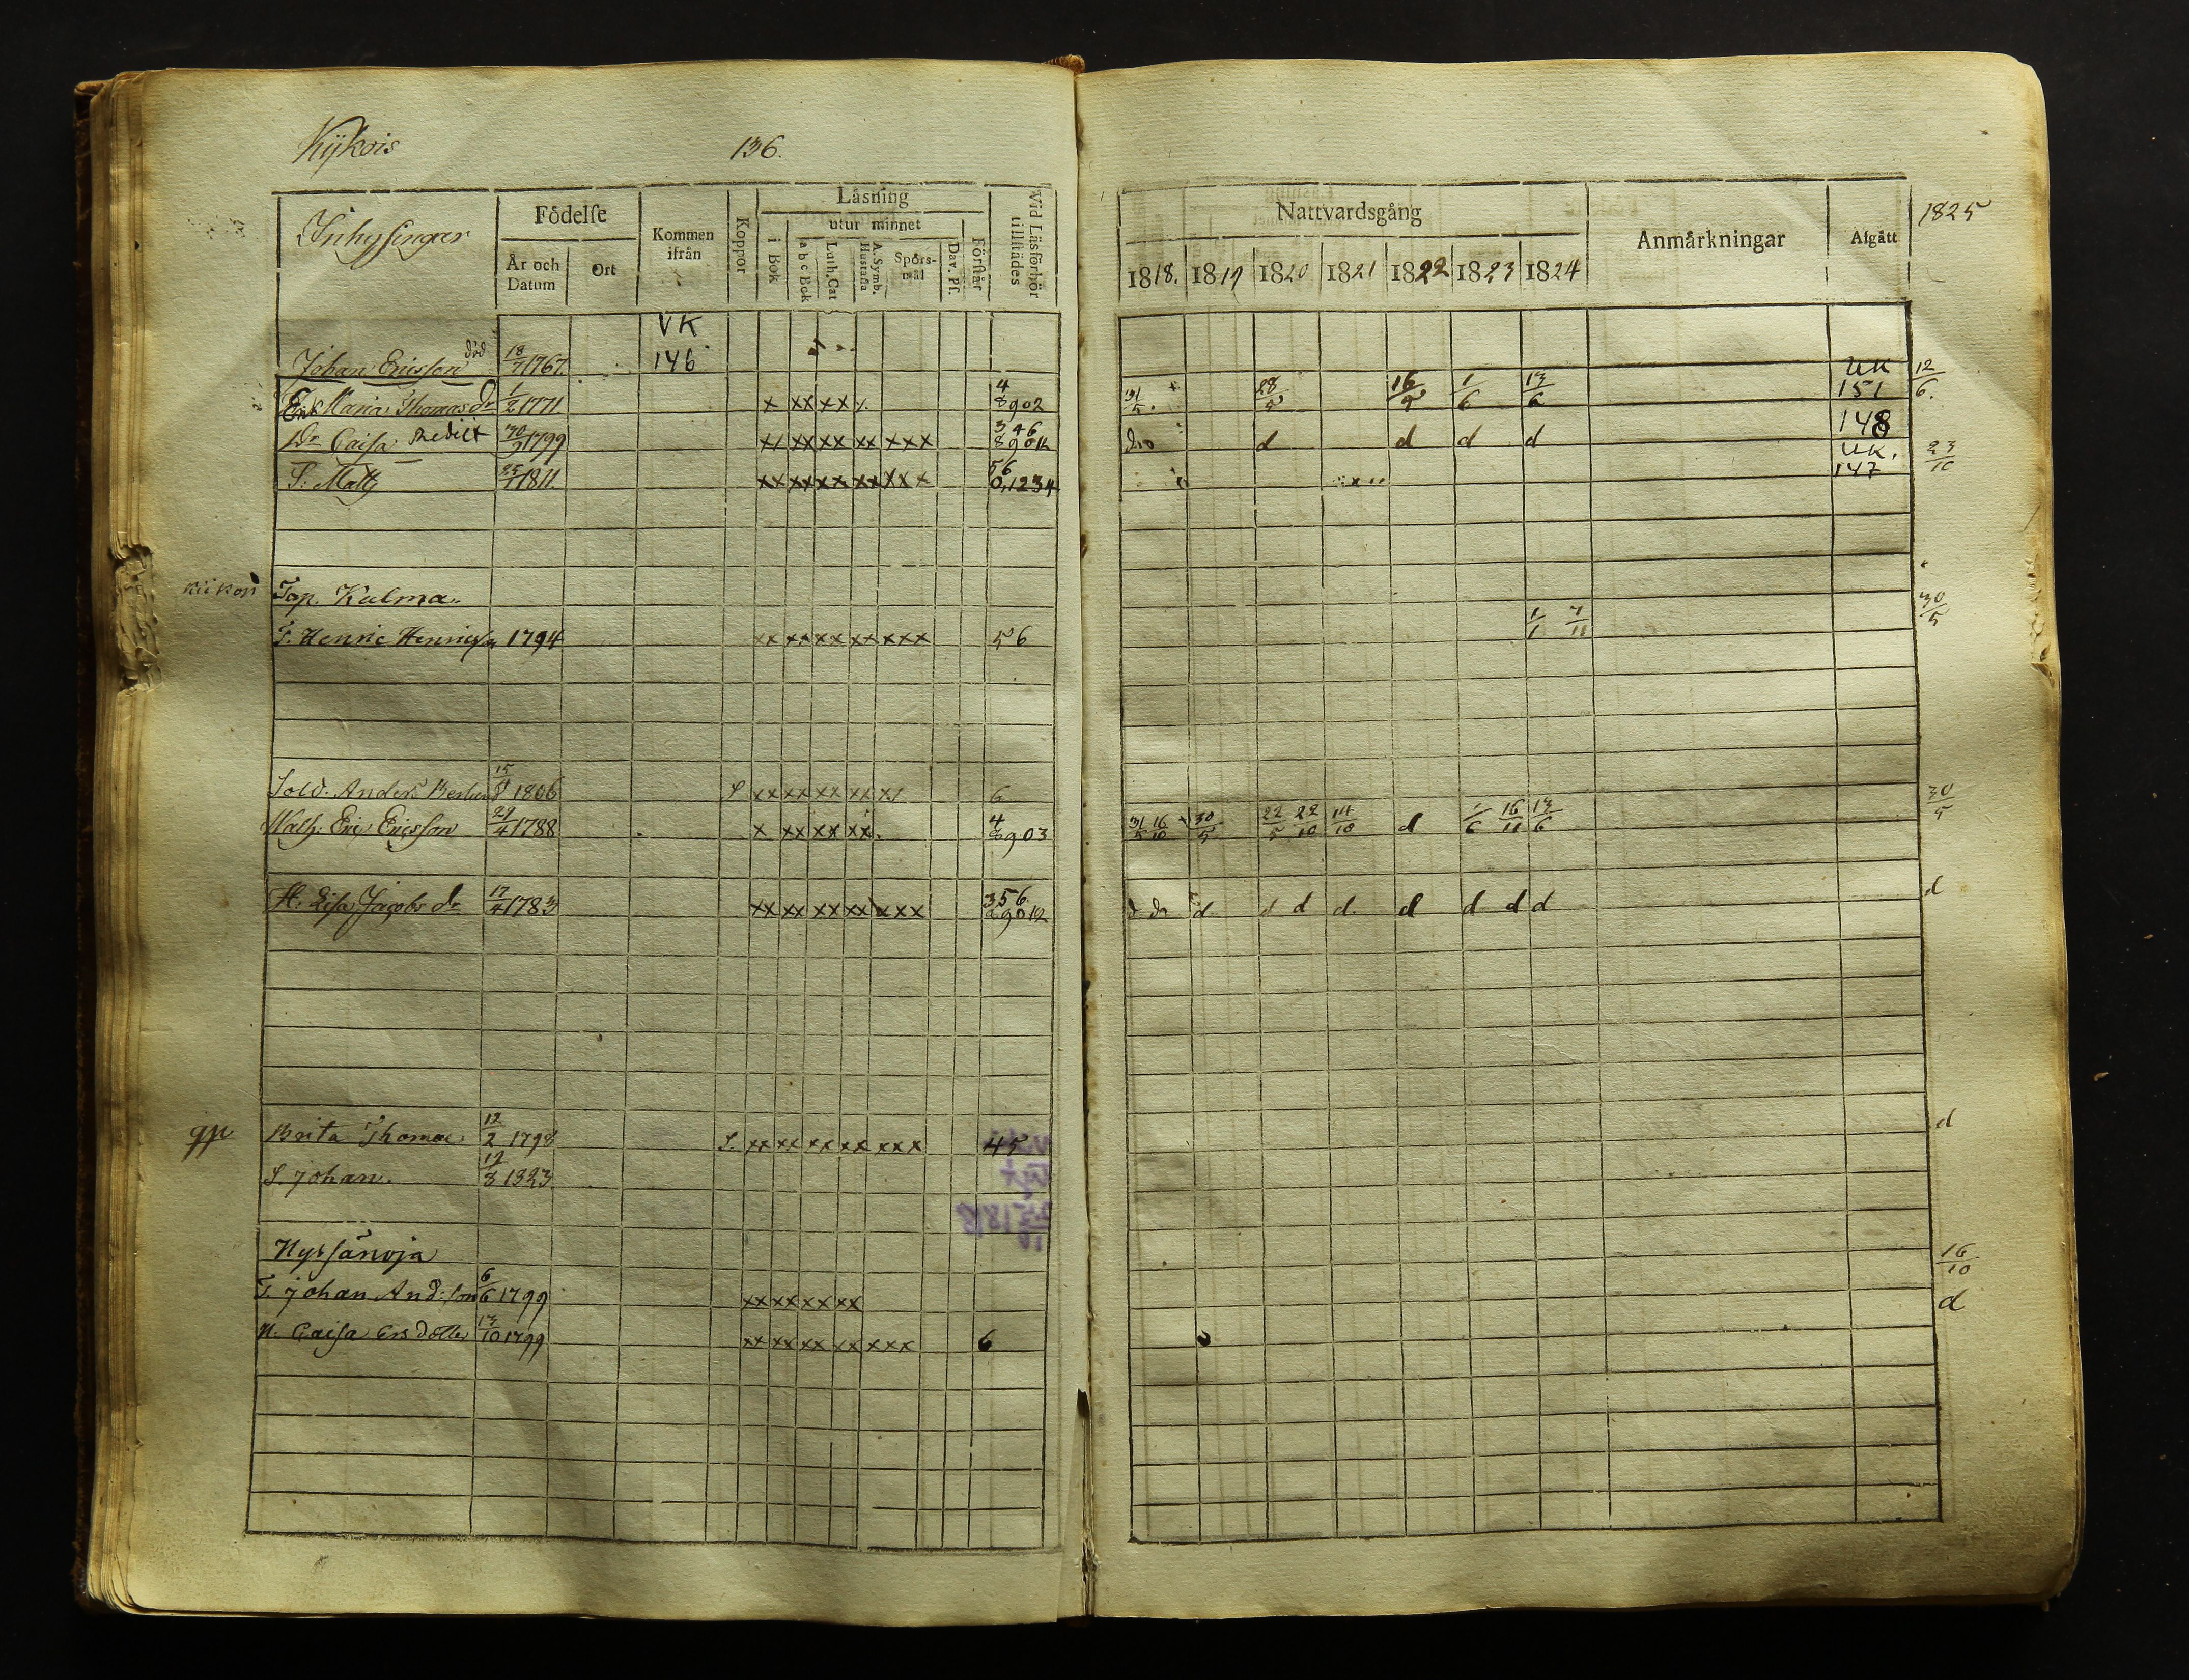 Kÿkois
136.
Inhysingar
Födelse
År och Datum
Ort
Kommen ifrån
Koppor
Läsning
i Bok
utur minnet
a b c Bok
Luth. Cat
A. Symb. Hustafla
Spörsmål
Dav. Ps.
Förstår
Vid Läsförhör tillstädes
Nattvardsgång
1818. 1819 1820 1821 1822 1823 1824
Anmärkningar
Afgått
1825
VK
Johan Ericsson död 18/7 1767. 146
UK 12/6.
Enk Maria Thomas dr 1/2 1771 x xx xx x 4 8902 31/5. 28/5 16/9 1/6 13/6 151
Dr Caisa 30/9 1799 xx xx xx xx xxx 346 dro d d d d 148
UK. 23/10
S. Matts 25/1 1811. xx xx xx xx xxx 56 0,1234 147
Top. Kulma.
T. Henric 1794 xx xx xx xx xxx 56 1/1 7/11 30/5
Sold. Anders 15/8 1806 S xx xx xx xx xx 6
Eric Ericsson 29/4 1788 x xx xx xx. 4 8903 31/5 16/10 30/5 22/5 22/10 14/10 d 1/6 16/11 13/6 30/5
H. Lisa Jacobs dr 17/4 1783 xx xx xx xx xxx 356 89012 d do d d d d. d d d d d
Brita Thomae 12/2 1798 S. xx xx xx xx xxx 45 d
S. Johan. 12/3 1823
T. Johan And:son 6/6 1799 xx xx xx xx 16/10
H. Caisa Ersdotter 13/10 1799 xx xx xx xx xxx 6 d